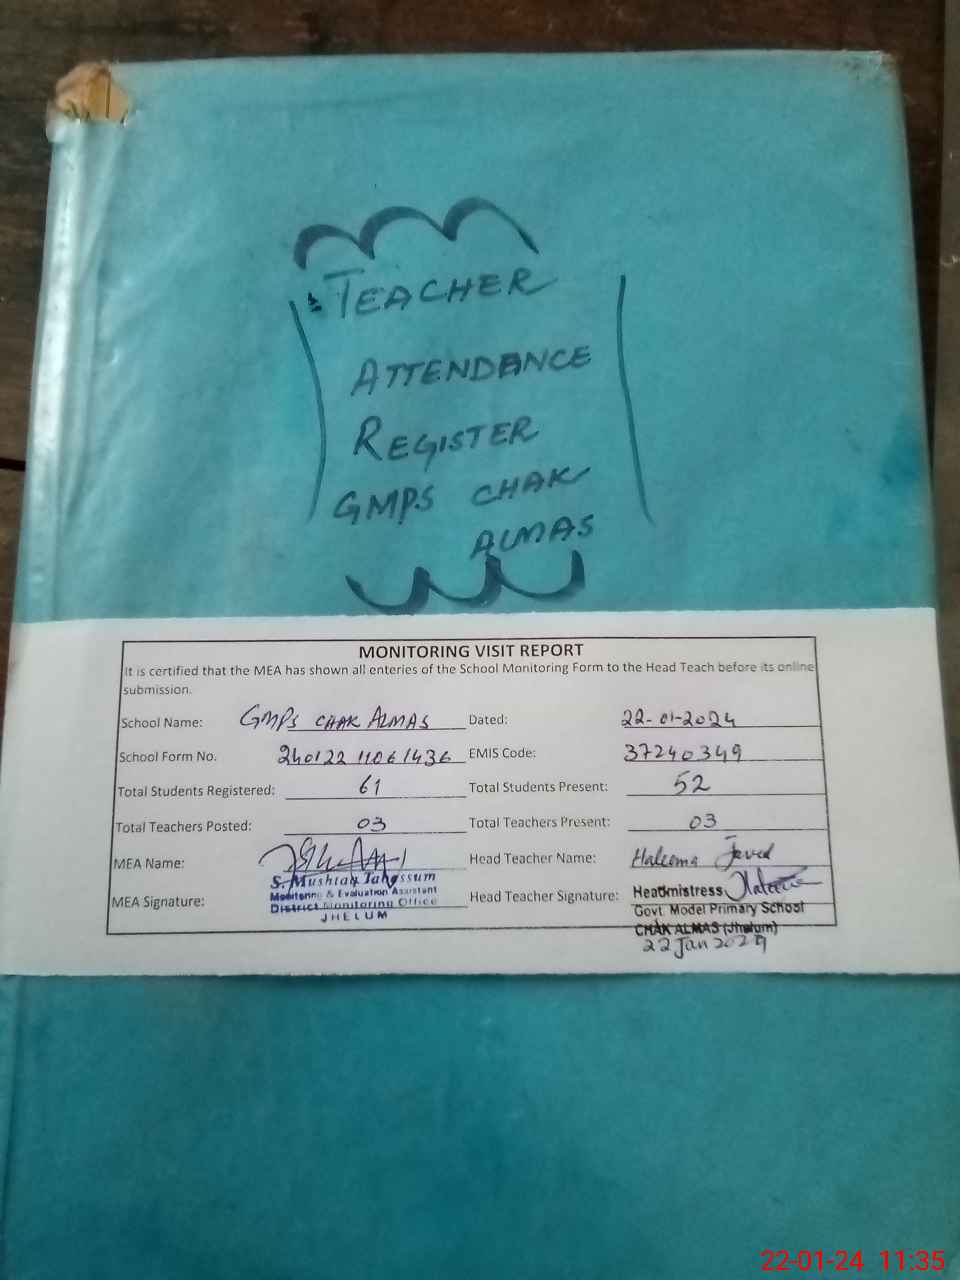 TEACHER
ATTENDANCE
REGISTER
GMPS CHAK
ALMAS
MONITORING VISIT REPORT
It is certified that the MEA has shown all enteries of the School Monitoring Form to the Head Teach before its online
submission.
School Name: GMPS CHAK ALMAS Dated: 22-01-2024
School Form No. 240122 11061436 EMIS Code: 37240349
Total Students Registered: 61 Total Students Present: 52
Total Teachers Posted: 03 Total Teachers Present: 03
MEA Name: Head Teacher Name: Haleema Javed
MEA Signature: S. Mushtaq Tabassum Head Teacher Signature: Headmistress
Monitoring & Evaluation Assistant Govt. Model Primary School
District Monitoring Office CHAK ALMAS (Jhelum)
JHELUM 22 Jan 2024
22-01-24 11:35